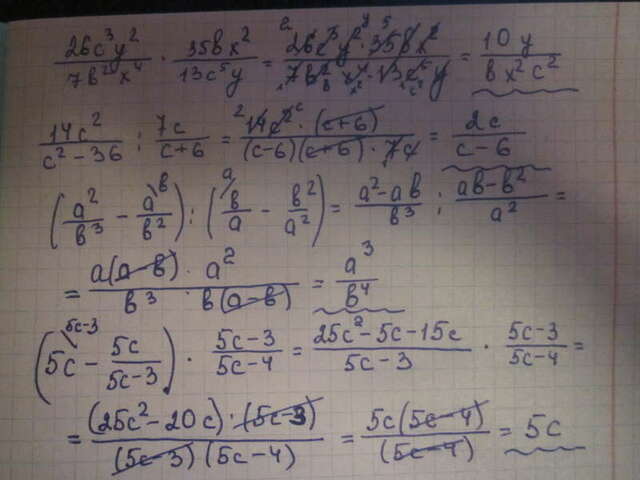 26c³y²/7в²x⁴ · 35вx²/13c⁵y = 26c³y² · 35вx²/7в²x⁴ · 13c⁵y = 10y/вx²c²
14c²/c²-36 : 7c/c+6 = 14c² · (c+6)/(c-6)(c+6) · 7c = 2c/c-6
(a²/в³ - a/в²) : (в/a - в²/a²) = a²-aв/в³ : aв-в²/a² =
= a(a-в) · a²/в³ · в(a-в) = a³/в⁴
(5c - 5c/5c-3) · 5c-3/5c-4 = 25c²-5c-15c/5c-3 · 5c-3/5c-4 =
= (25c²-20c) · (5c-3)/(5c-3)(5c-4) = 5c(5c-4)/(5c-4) = 5c